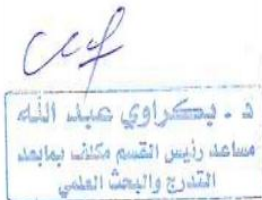 د . بكراوي عبد الله
مساعد رئيس القسم مكلف بمابعد
التدرج والبحث العلمي